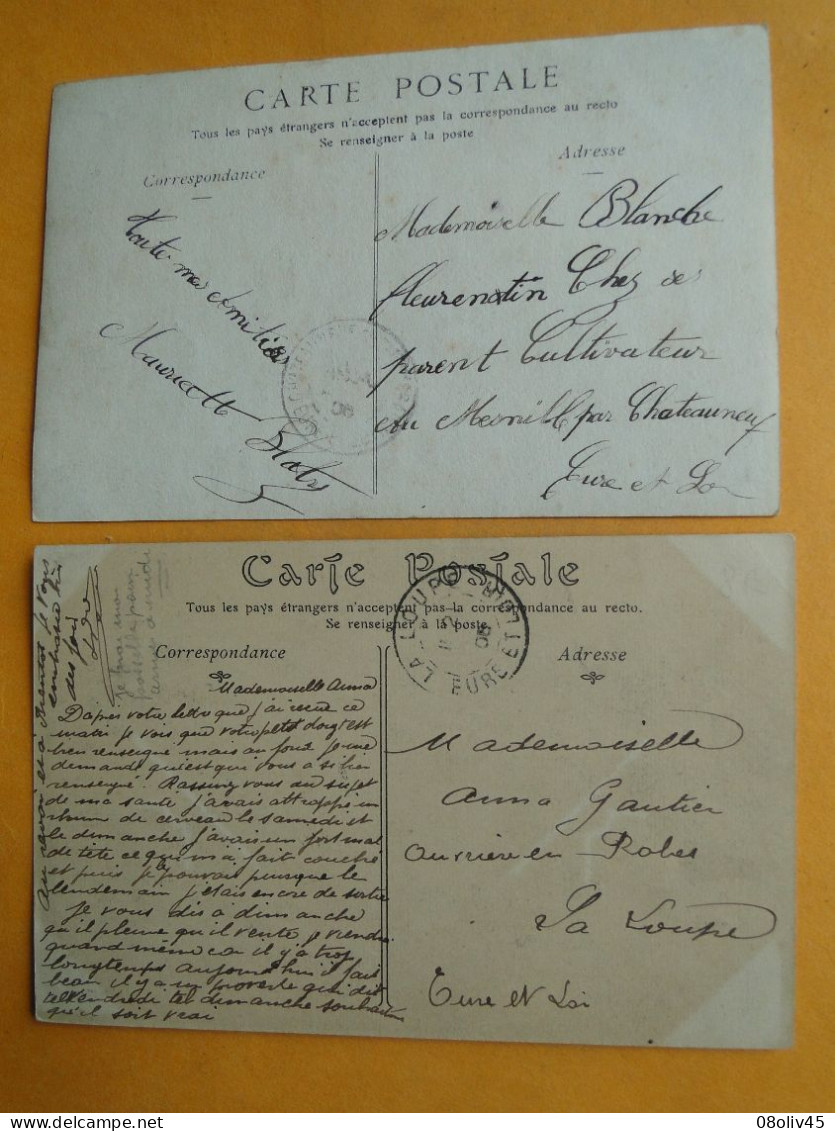 CARTE POSTALE
Tous les pays étrangers n'acceptent pas la correspondance au recto
Se renseigner à la poste
Correspondance
Adresse
Toute mes amitiés
Maurice
Mademoiselle Blanche
fleurenatin Chez ses
parent Cultivateur
Au Mesnill par Chateauneuf
Eure et Loir
Carte Postale
Tous les pays étrangers n'acceptent pas la correspondance au recto.
Se renseigner à la poste.
Correspondance
Adresse
LA LOUPE
EURE ET LOIR
08
Mademoiselle Anna
D'après votre lettre que j'ai reçue ce
matin je vois que votre petit doigt est
bien renseigné mais au four je me
demande qui est qui vous a si bien
renseigné. Rassurez vous au sujet
de ma santé j'avais attrappé un
rhume de cerveau le samedi et
le dimanche j'avais un fort mal
de tête ce qui m'a fait couché
et puis je pouvais puisque le
lendemain j'étais encore de sortie
Je vous dis à dimanche
qu'il pleuve qu'il vente je viendrai
quand même car il y a trop
longtemps aujourd'hui il fait
beau il y a un proverbe qui dit
tel vendredi tel dimanche souhaitons
qu'il soit vrai
Au revoir et à bientot je vous
embrasse bien
des fois
Mademoiselle
Anna Gautier
ouvrière en Robes
La Loupe
Eure et Loir
08oliv45